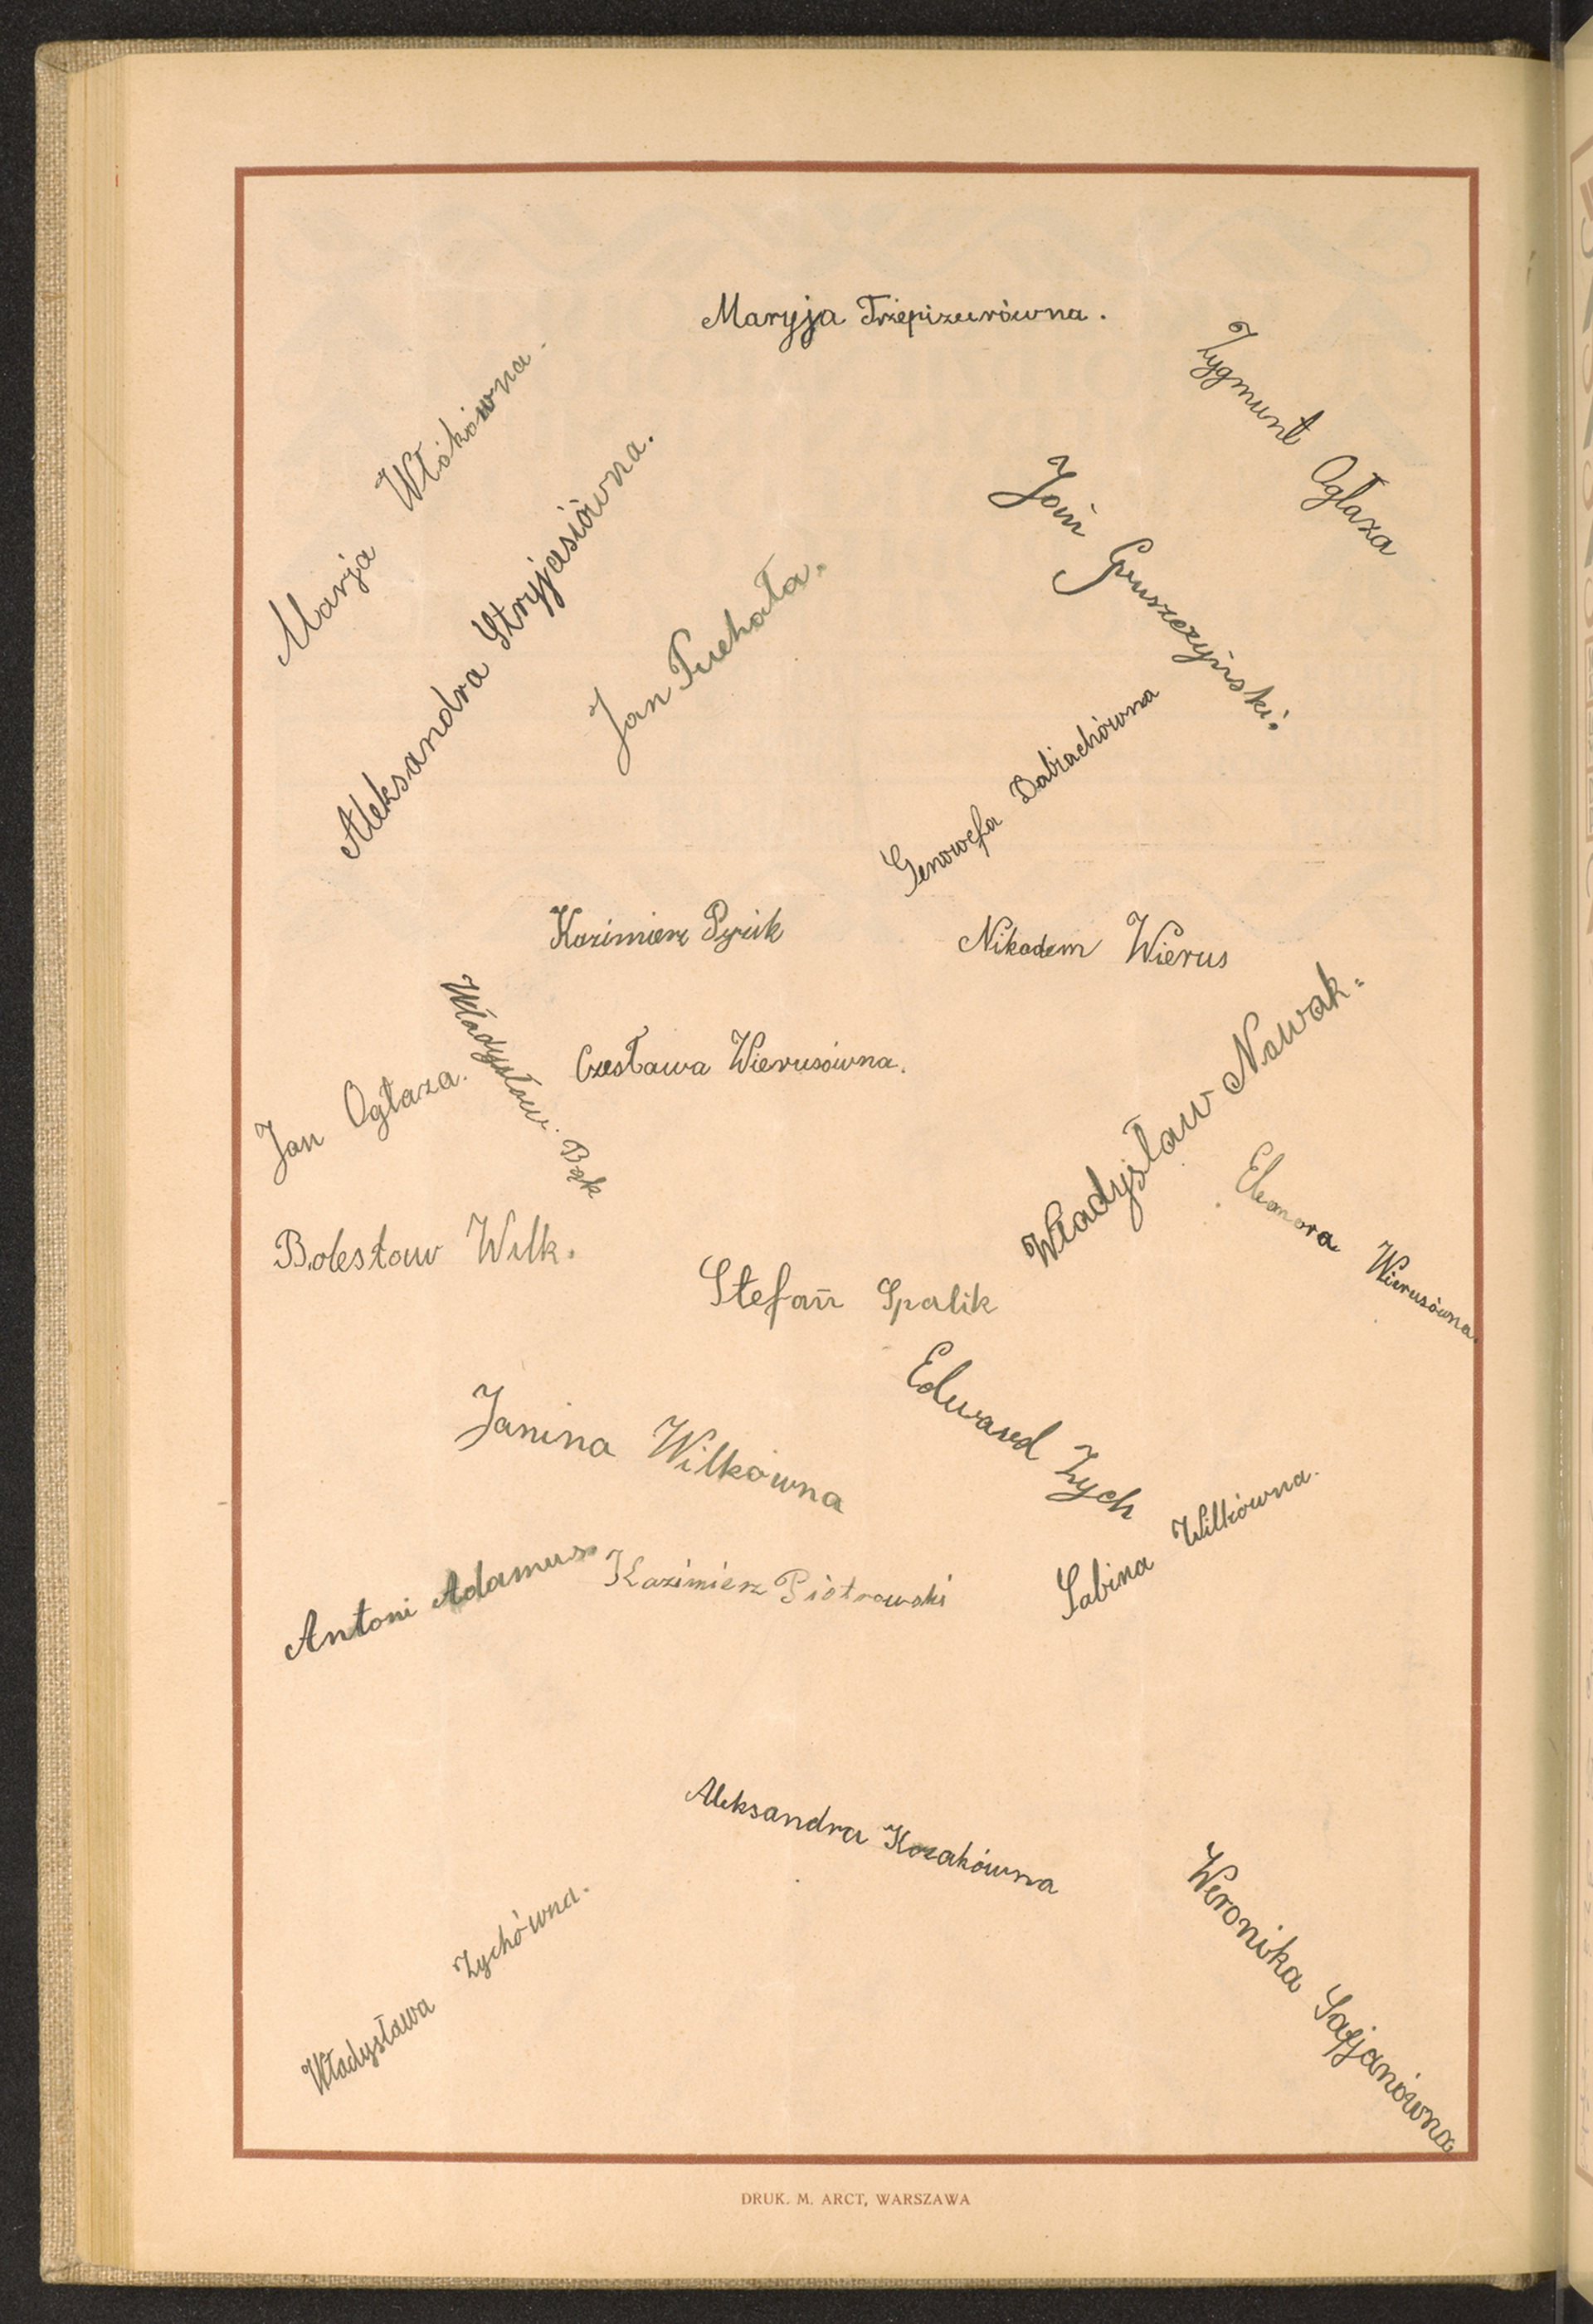 Maryja Trzepizurówna.
Zygmunt Ogłaza
Marja Włókówna.
Aleksandra Stryjasiówna.
Jan Puchała.
Jan Gruszczyński.
Genowefa Dabiachówna
Kazimierz Pyzik
Nikodem Wierus
Władysław Bąk
Czesława Wierusówna.
Jan Ogłaza.
Władysław Nowak.
Eleonora Wierusówna.
Bolesław Wilk.
Stefan Spalik
Edward Zych
Janina Wilkówna
Sabina Wilkówna.
Antoni Adamus
Kazimierz Piotrowski
Aleksandra Kozakówna
Weronika Sajjanówna
Władysława Zychówna.
DRUK. M. ARCT, WARSZAWA